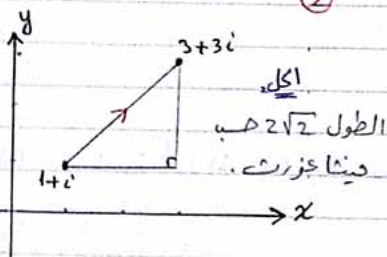 2
y
3+3i
الحل
الطول 2√2 حسب
فيثاغورث.
1+i
x